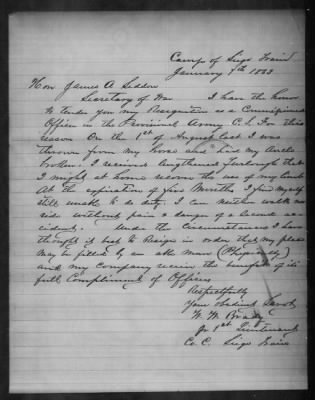 Camp of Siege Train
January 7th 1863
Hon James A Seddon
Secretary of War I have the honor
to tender you my Resignation as a Commissioned
Officer in the Provisional Army C.S. For this
reason On the 1st of August last I was
thrown from my horse and had my Ancle
broken. I received lengthened furlough that
I might at home recover the use of my limb
At the expiration of five Months I find myself
still unable to do duty. I can neither walk nor
ride without pain & danger of a second ac-
cident. Under the Circumstances I have
thought it best to Resign in order that my place
May be filled by an able Man (Physically)
and my Company receive the benefit of its
full Compliment of Officers
Respectfully
Your obedient Servt
W. W. Brady
Jr 1st Lieutenant
Co. C. Siege Train